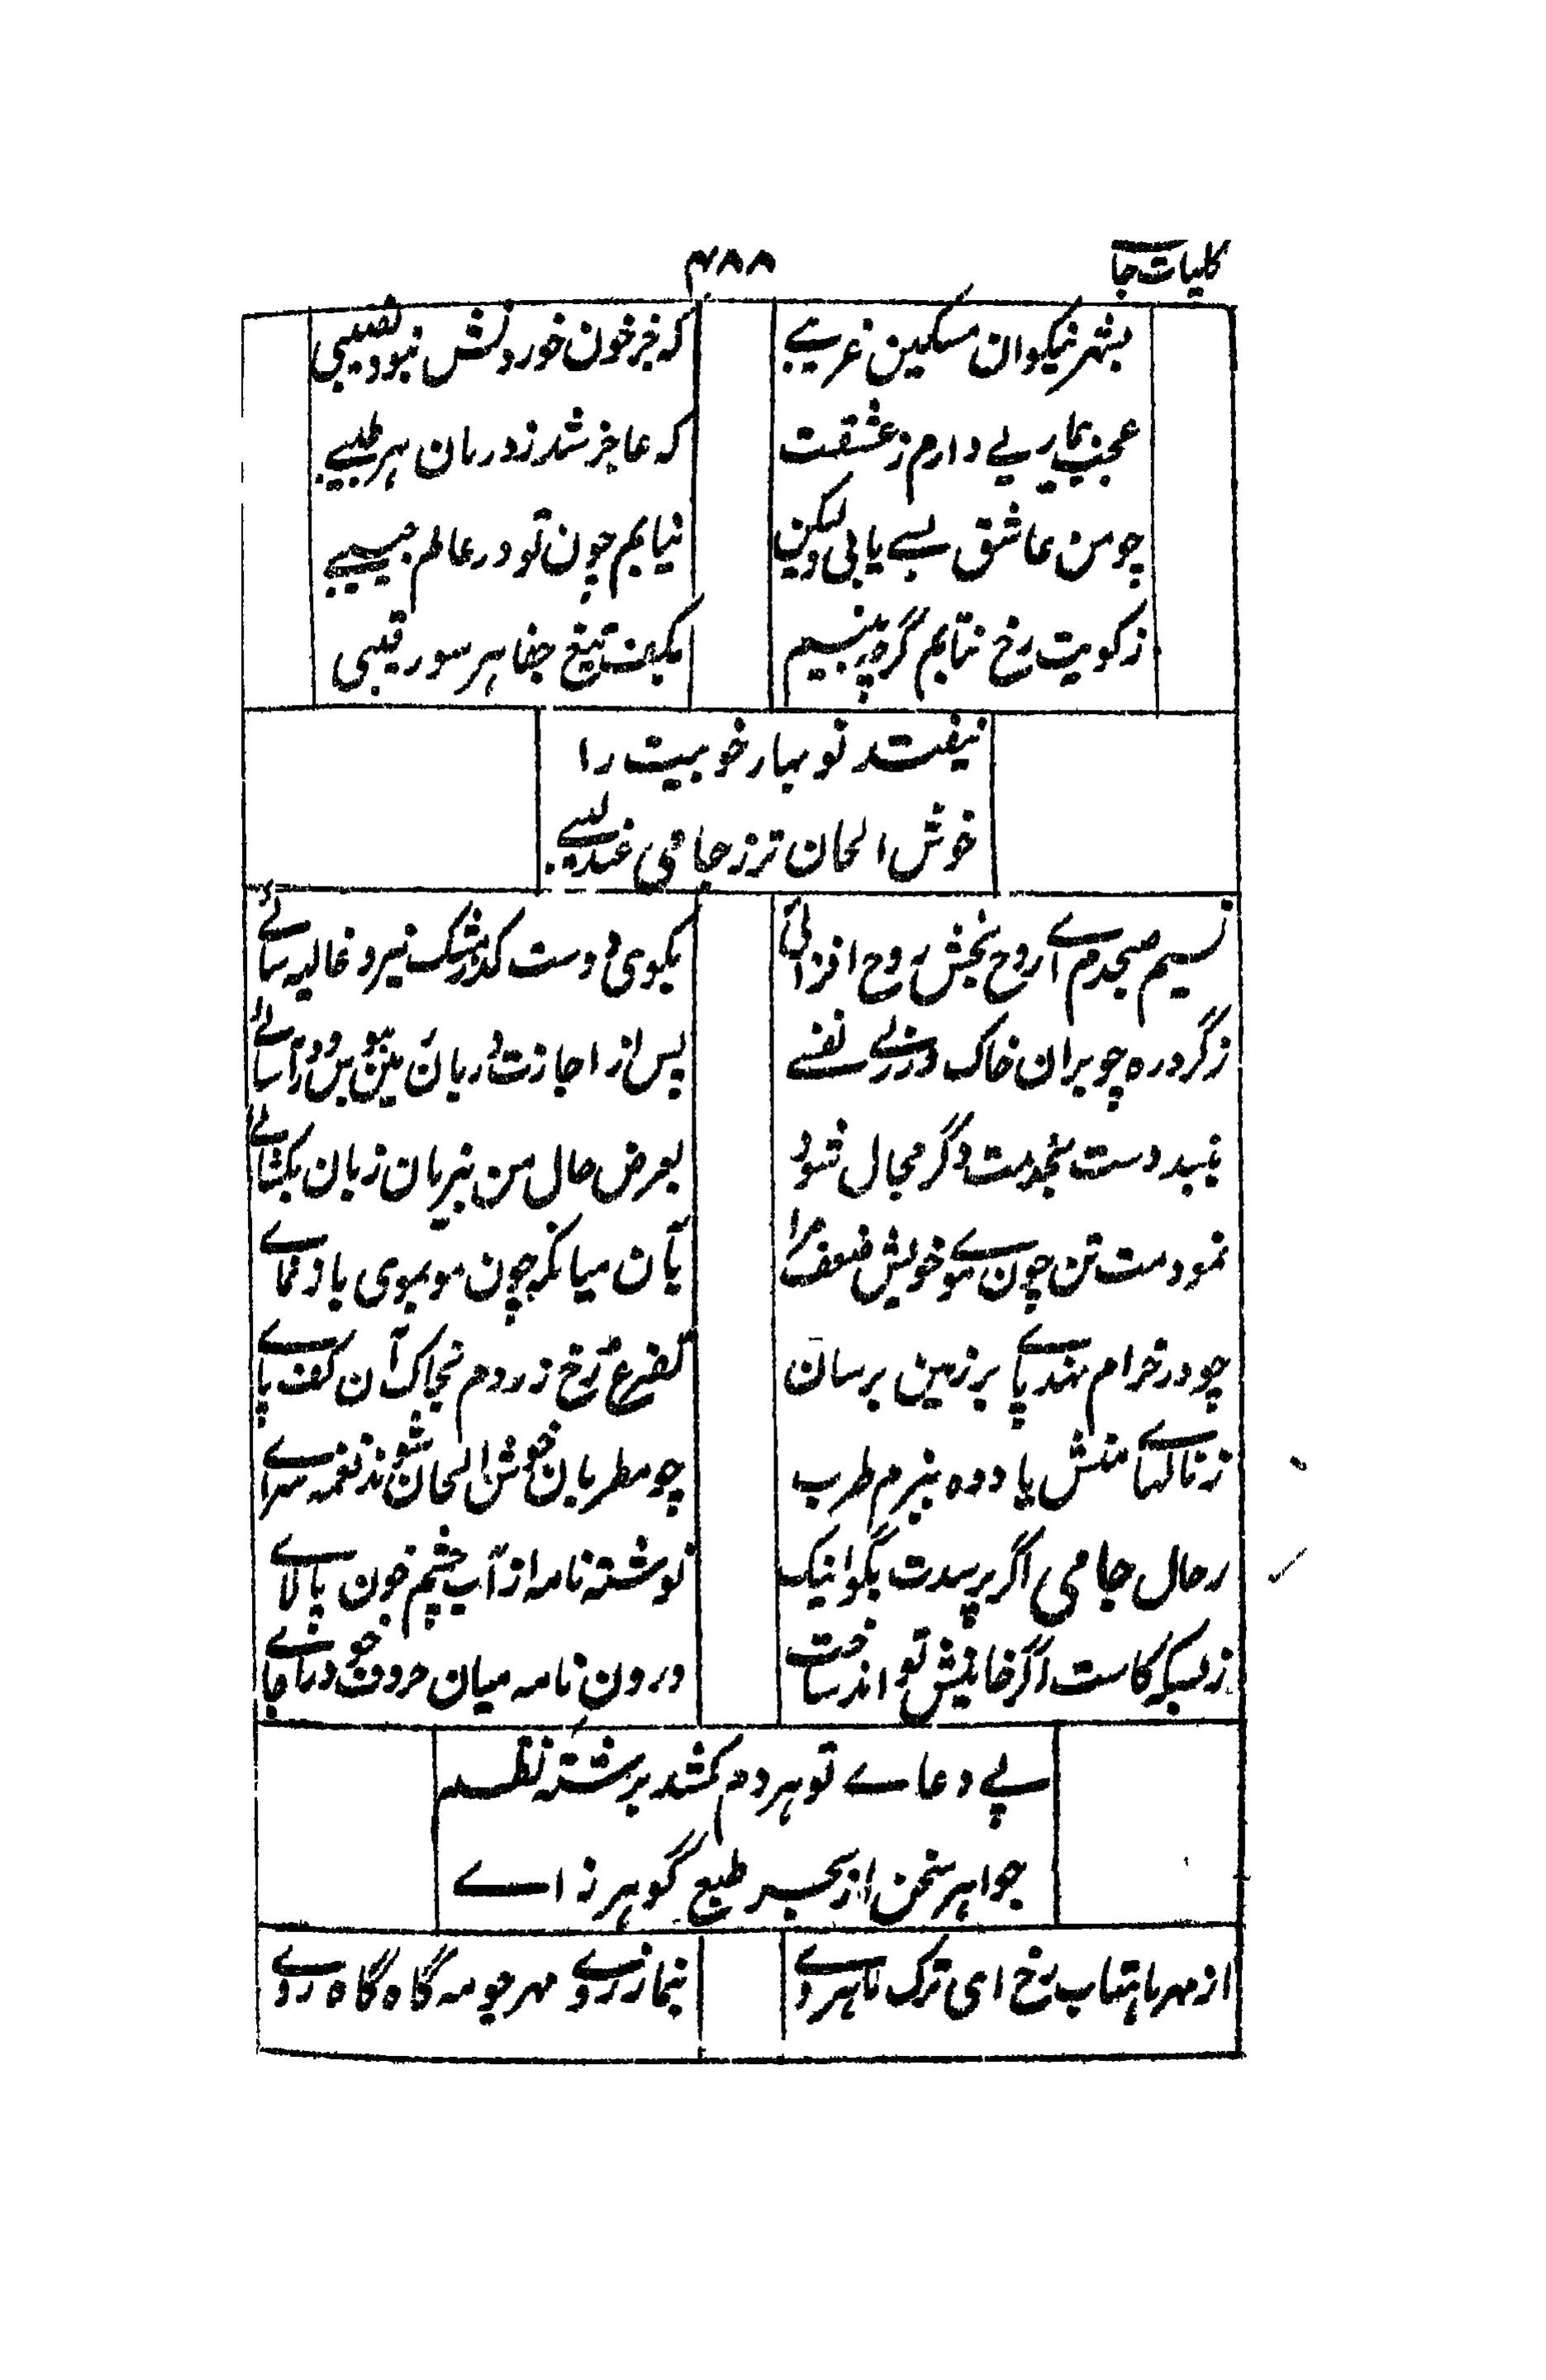 کلیات جا
۴۸۸
بشهر نیکوان مسکین غریبے
که جز خون خوردنش نبود نصیبی
عجب بیماریے دارم ز عشقت
که عاجز شد ز درمان هر طبیبے
چو من عاشق بسے یابی ولیکن
نیابم چون تو در عالم حبیبے
ز کویت رخ نتابم گرچه بینم
بکف تیغ جفا هر سو رقیبی
نیفتد نوبهار خوبیت را
خوش الحان تر ز جامی عندلیبے
نسیم صبحدم اے روح بخش روح افزائی
بکوی دوست گذر مشک نیز و غالیه سائے
ز گرد ره چو بران خاک در زنی نفسے
پس از اجازت دربان زمین ببوس و درآئے
ببند دست بخدمت وگر مجال شود
بعرض حال من بیزبان زبان بکشائے
نمودمت تن چون موے خویش ضعف مرا
بآن میانکه چون مو بموی باو نمائے
چو در خرام نهد پاے بر زمین برسان
تضرع رخ زردم بخاک آن کف پاے
ز نالهاے منش یاد ده ببزم طرب
چو مطربان خوش الحان شوند نغمه سراے
ز حال جامی اگر پرسدت بگو اینک
نوشته نامه از آب چشم خون پالاے
ز بسکه کاست اگر خانیش تو اند ساخت
درون نامه میان حروف خود را جاے
پے دعاے تو هر دم کشد برشته نظم
جواهر سخن از بحر طبع گوهر زاے
از مهر ما متاب رخ ای ترک ماهروے
بنما ز روے مهر چو مه گاه گاه روے